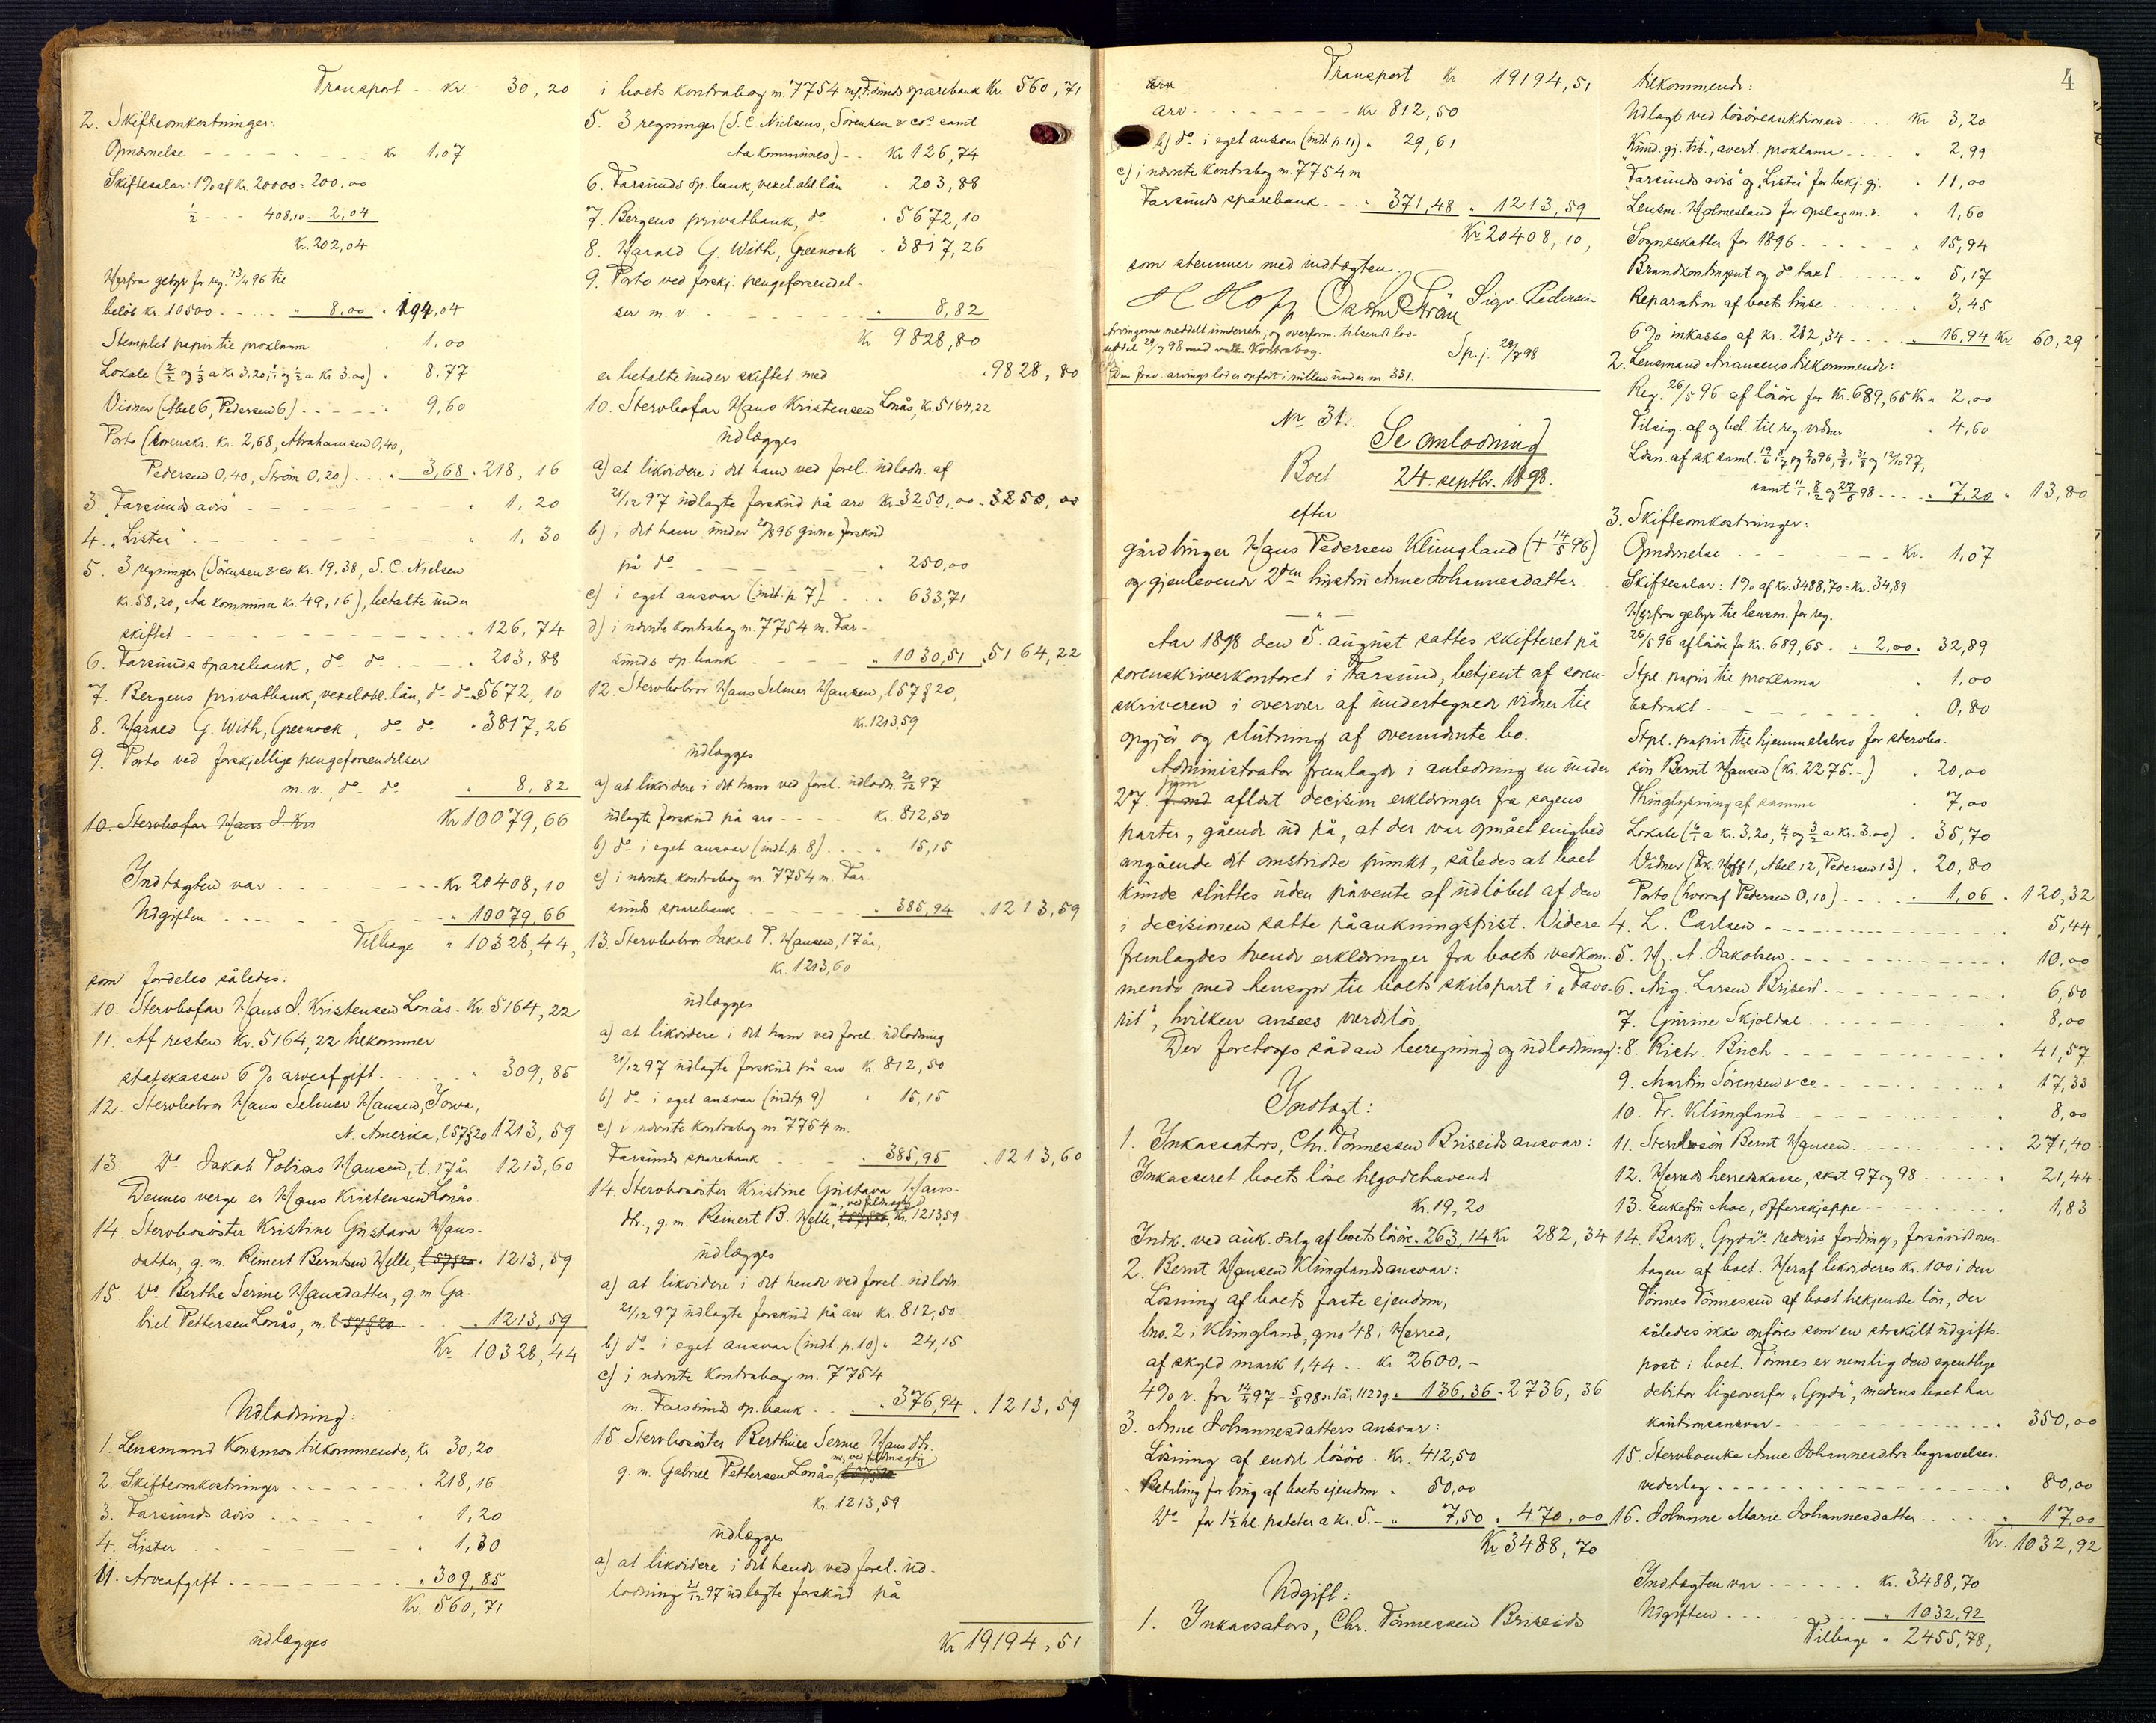 Transport .. kr. 30,20
2. Skifteomkostninger:
Opnævnelse - - - - - - - kr 1,07
Skiftesalær: 1% af kr. 20000 = 200,00
½ - - - 408,10 = 2,04
kr. 202,04
Herfra gebyr for reg. 13/4 96 til
beløb kr. 10500 - - - " 8,00 " 194,04
Stemplet papir til proklama " 1,00
Lokale (2/2 og 1/3 a kr 3,20, 1/1 og 1/2 a kr. 3.00) " 8,77
Vidner (Abel 6, Pedersen 6) - - - - 9,60
Porto (sorenskr. kr. 2,68, Abrahamsen 0,40,
Pedersen 0,40, Strøm 0,20) . . . 3,68 " 218, 16
3. "Farsunds avis" - - - - - - - " 1, 20
4. "Lister" - - - - - - - " 1, 30
5. 3 regninger (Sörensen & co kr. 19,38, S. C. Nielsen
kr. 58,20, Aa kommune kr. 49,16), betalte under
skiftet - - - - - - - - - " 126, 74
6. Farsunds sparebank, do do . - - . " 203, 88
7. Bergens privatbank, vexelobl. lån, do do " 5672, 10
8. Harald G. With, Greenock, do do " 3817, 26
9. Porto ved forskjellige pengeforsendelser
m. v., do do " 8, 82
10. Stervbofar Hans J. Kris
Kr 10079, 66
Indtægten var . - - - - - - Kr 20408, 10
Udgiften . - - - - - - - " 10079, 66
Tilbage " 10328, 44,
som fordeles således:
10. Stervbofar Hans J. Kristensen Lonås - Kr. 5164, 22
11. Af resten kr. 5164, 22 tilkommer
statskassen 6 % arveafgift . - - - . " 309, 85
12. Stervbobror Hans Selmer Hansen, Iowa,
N. Amerika, l 57 § 20 1213, 59
13. Do Jakob Tobias Hansen, t. 17 år 1213, 60
Dennes verge er Hans Kristensen Lonås
14. Stervbosöster Kristine Gustava Hans-
datter, g. m. Reinert Berntsen Helle, l 57 § 20 " 1213, 59
15. Do Berthe Serine Hansdatter, g. m. Ga-
briel Pettersen Lonås, m. l. 57 § 20 - . . " 1213, 59
Kr. 10328, 44
Udlodning:
1. Lensmand Konsmos tilkommende, kr. 30,20
2. Skifteomkostninger - - - - - - " 218,16
3. Farsunds avis . - - - - - " 1,20
4. Lister . - - - - - - - - " 1,30
11. Arveafgift . - - - - - - - " 309,85
Kr. 560,71
udlægges
i boets kontrabog nr. 7754 m/Farsunds sparebank kr. 560, 71
5. 3 regninger (S. C. Nielsens, Sörensen & co. samt
Aa kommunes) - - Kr 126,74
6. Farsunds sp. bank, vexel.obl. lån " 203,88
7. Bergens privatbank, do " 5672,10
8. Harald G. With, Greenock " 3817,26
9. Porto ved forskj. pengeforsendel-
ser m. v. - - - - - - - " 8,82
Kr 9828,80
er betalte under skiftet med " 9828, 80
10. Stervbofar Hans Kristensen Lonås, Kr. 5164,22
udlægges
a) at likvidere i det ham ved forel. udlodn. af
21/12 97 udlagte forskud på arv kr. 3250,00 " 3250, 00
b) i det ham under 20/8 96 givne forskud
på do - - - - - - - " 250,00
c) i eget ansvar (indt. p. 7) - - . . 633,71
d) i nævnte kontrabog nr. 7754 m. Far-
sunds sp. bank - - - - - " 1030,51 " 5164, 22
12. Stervbobror Hans Selmer Hansen, l 57 § 20,
Kr. 1213,59
udlægges
a) at likvidere i det ham ved forel. udlodn. 20/12 97
udlagte forskud på arv - - - - Kr. 812,50
b) do i eget ansvar (indt. p. 8) . . . " 15,15
c) i nævnte kontrabog nr. 7754 m. Far-
sunds sparebank - - - - - " 385,94 " 1213, 59
13. Stervbobror Jakob T. Hansen, 17 år,
Kr. 1213,60
udlægges
a) at likvidere i det ham ved forel. udlodning
21/12 97 udlagte forskud på arv kr. 812,50
b) do i eget ansvar (indt. p. 9) " 15,15
c) i nævnte kontrabog nr. 7754 m.
Farsunds sparebank - - - " 385,95 " 1213, 60
14. Stervbosöster Kristine Gustava Hans-
m. ved fuldmægtig
dtr., g. m. Reinert B. Helle, l 57 § 20, Kr. 1213,59
udlægges
a) at likvidere i det hende ved forel. udlodn.
21/12 97 udlagte forskud på arv kr. 812,50
b) do i eget ansvar (indt. p. 10) " 24,15
c) i nævnte kontrabog nr. 7754
m. Farsunds sp. bank - . . " 376,94 " 1213, 59
15. Stervbosöster Berthe Serine Hansdtr.
m. ved fuldmægtig
g. m. Gabriel Pettersen Lonås, l 57 § 20
Kr. 1213,59
udlægges
a) at likvidere i det hende ved forel. ud-
lodning 21/12 97 udlagte forskud på
Kr 19194, 51
Transport Kr. 19194, 51
arv
arv - - - - - - - Kr 812,50
b) do i eget ansvar (indt. p. 11) " 29,61
c) i nævnte kontrabog nr. 7754 m
Farsunds sparebank - . . " 371,48 " 1213, 59
Kr. 20408, 10,
som stemmer med indtægten.
H Hopp Oskar Ström Sigv. Pedersen
Arvingerne meddelt underretn., og overform. tilsendt lod-
seddel 29/7 98 med vedk. kontrabog. Sp. j. 29/7 98
Den frav. arvings lod er opført i rullen under nr. 331.
Nr 31.
Se omlodning
24. septbr. 1898.
Boet
efter
gårdbruger Hans Pedersen Klungland († 14/5 96)
og gjenlevende 2den hustru Anne Johannesdatter.
— " —
Aar 1898 den 5. august sattes skifteret på
sorenskriverkontoret i Farsund, betjent af soren-
skriveren i overvær af undertegnede vidner til
opgjør og slutning af ovennævnte bo.
Administrator fremlagde i anledning en under
juni
27. afsagt decision erklæringer fra sagens
parter, gående ud på, at der var opnået enighed
angående det omstridte punkt, således at boet
kunde sluttes uden påvente af udløbet af den
i decisionen satte påankningsfrist. Videre
fremlagdes tvende erklæringer fra boets vedkom-
mende med hensyn til boets skibspart i "Favo-
rit", hvilken ansees værdiløs.
Der foretoges sådan beregning og udlodning:
Indtægt:
1. Inkassators, Chr. Tönnessen Briseids ansvar:
Inkasseret boets löse tilgodehavend
Kr. 19, 20
Indk. ved auk. salg af boets lösöre " 263, 14 Kr 282, 34
2. Bernt Hansen Klunglands ansvar:
Lösning af boets faste ejendom,
bno. 2 i Klungland, gno 48 i Herred,
af skyld mark 1,44 . . Kr. 2600, -
4% r. fra 14/4 97 - 5/8 98 o: 1 år, 112 dg. " 136,36 " 2736, 36
3. Anne Johannesdatters ansvar:
Lösning af endel lösöre . Kr. 412,50
Betaling for brug af boets ejendom " 50,00
Do for 1½ hl. poteter a kr. 5. - " 7,50 " 470,00
Kr. 3488, 70
Udgift:
1. Inkassators, Chr. Tönnessen Briseids
4
tilkommende:
Udlagt ved lösöreauktionen . . . Kr 3,20
"Kund. gj. tid.", avert. proklama . . . . " 2,99
"Farsunds avis" og "Lister" for bekj. gj. " 11,00
Lensm. Holmesland for opslag m. v. " 1,60
Sogneskatter for 1896 . - - - - " 15,94
Brandkontingent og do taxt . . - . . " 5,17
Reparation af boets huse . . . . " 3,45
6% inkasso af kr. 282,34 - - - . " 16,94 Kr 60,29
2. Lensmand Arianseus tilkommende:
Reg. 26/5 96 af lösöre for kr. 689,65 Kr " 2,00
Tilsig. af og bet. til reg. vidner " 4,60
samt 11/1, 8/2 og 27/6 98 . - . . " 7,20 " 13,80
3. Skifteomkostninger:
Opnævnelse . - - - - - - Kr. 1,07
Skiftesalær: 1% af kr. 3488,70 = kr. 34,89
Herfra gebyr til lensm. for reg.
26/5 96 af lösöre for kr. 689,65 . " 2,00 " 32,89
Stpl. papir til proklama " 1,00
Extrakt - - - - - - - " 0,80
Stpl. papir til hjemmelsbrev for stervbo-
sön Bernt Hansen (kr. 2275.-) " 20,00
Thinglysning af samme " 7,00
Lokale (6/1 a kr. 3,20, 4/1 og 3/2 a kr. 3.00) " 35,70
Vidner (Hopp 1, Abel 12, Pedersen 13) " 20,80
Porto (hvoraf Pedersen 0,10) . . . " 1,06 " 120,32
4. L. Carlsen - - - - - - - - " 5,44
5. H. A. Jakobsen . - - - - - - " 10,00
6. Mig. Larsen Briseid . - - - - - " 6,50
7. Gurine Skjoldal . - - - - - - " 8,00
8. Rich. Buch - - - - - - - - " 41,57
9. Martin Sörensen & co - - - - - - " 17,33
10. Tr. Klungland - - - - - - - " 8,00
11. Stervbosön Bernt Hansen . - - - - - " 271,40
12. Herreds herredskasse, skat 97 og 98 . . . . " 21,44
13. Enkefru Moe, offerskjæppe - - - - - - " 1,83
14. Bark "Gyda"s rederis fordring, forsåvidt over-
tagen af boet. Heraf likvideres kr. 100 i den
Tönnes Tönnessen af boet tilkjendte lön, der
således ikke opföres som en særskilt udgifts-
post i boet. Tönnes er nemlig den egentlige
debitor ligeoverfor "Gyda", medens boet har
kautionsansvar - - - - - - - - " 350,00
15. Stervboenke Anne Johannesdtrs begravelses-
vederlag . - - - - - - - - " 80,00
16. Johanne Marie Johannesdatter . . . . " 17,00
Kr. 1032,92
Indtægten var . - - - - - Kr. 3488,70
Udgiften . - - - - - - " 1032,92
Tilbage " 2455,78,